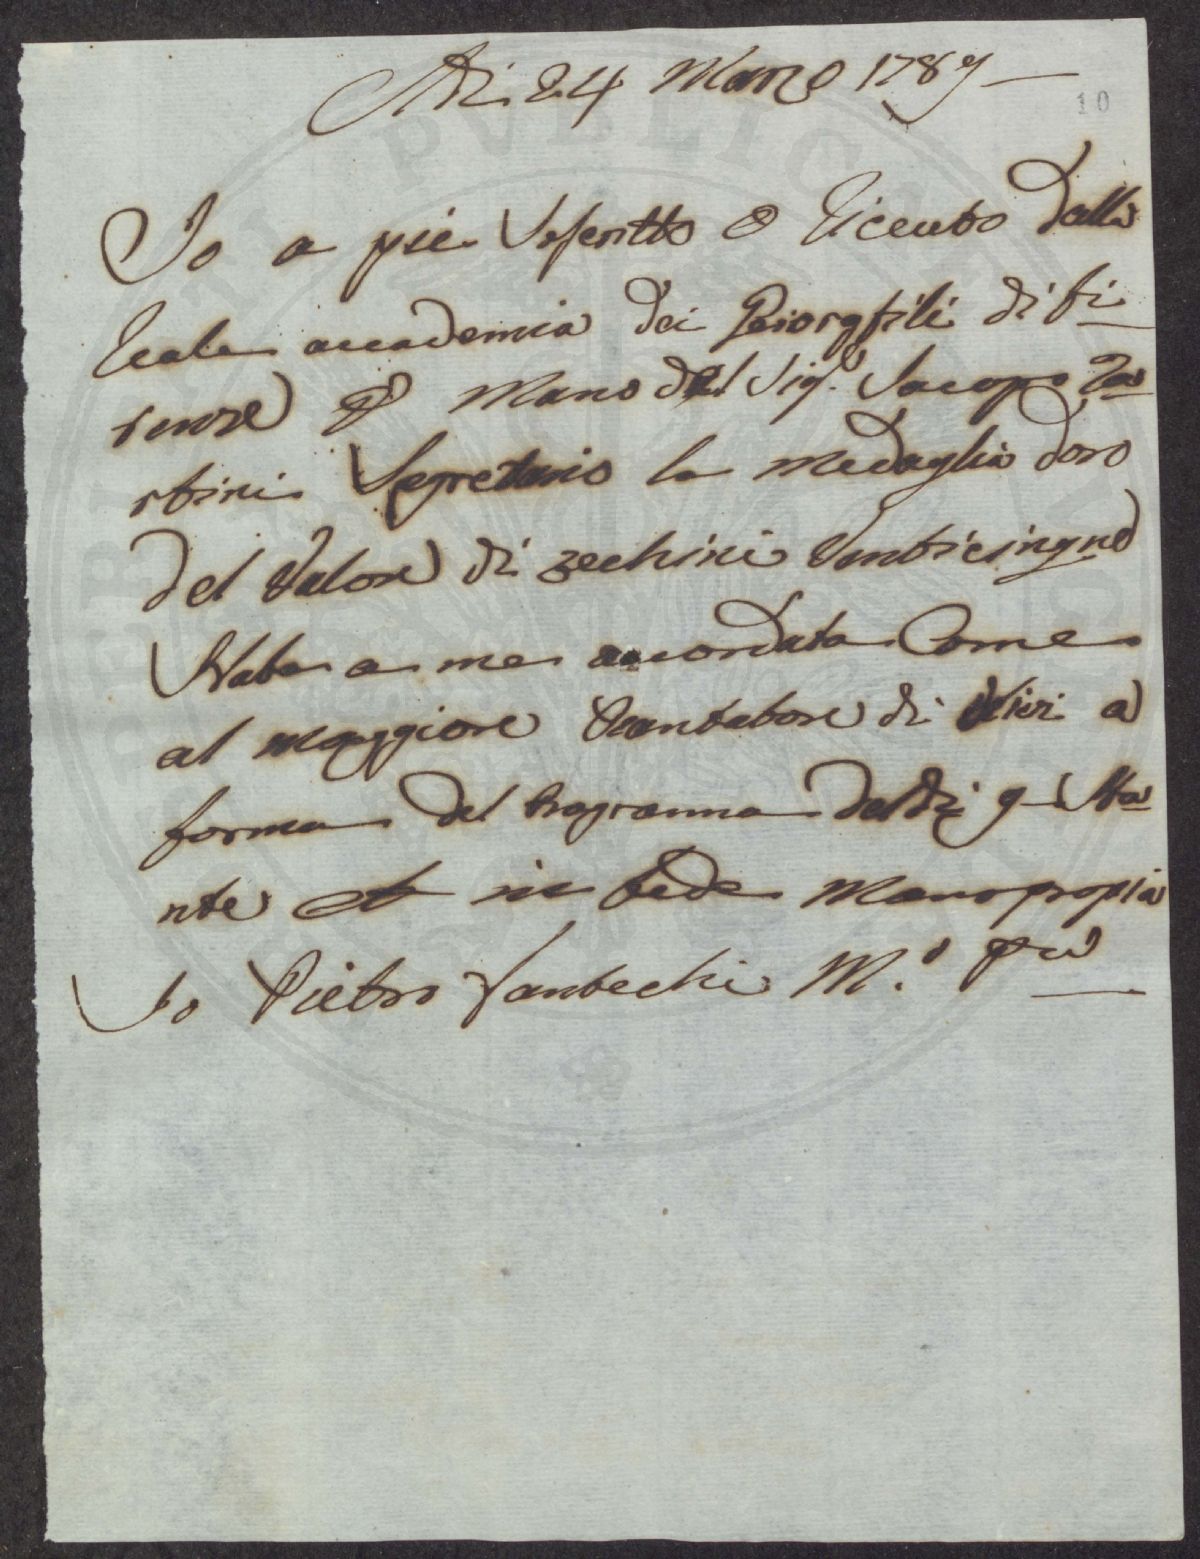 Adi 24 Marzo 1789
10
Io a piè Soscritto ò Riceuto dalla
Reale accademia dei Giorgfili di fi
renze P Mano del Sig.r Iacopo
Segretario la medaglia doro
del Valore di zechini Venticinque
Stata a me acordata Come
al maggiore Piantatore di Ulivi a
forma del Programma del dì
et in fede Mano propia
Io Pietro Fantechi M.o pa